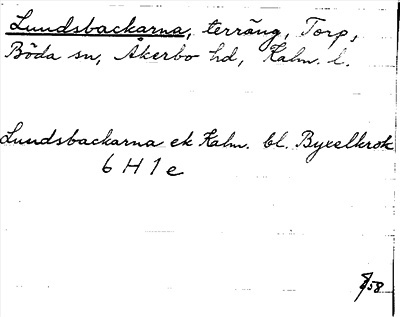 Lundsbackarna, terräng, Torp,
Böda sn, Åkerbo hd, Kalm. l.
Lundsbackarna ek Kalm. bl. Byxelkrok
6 H 1 e
/58